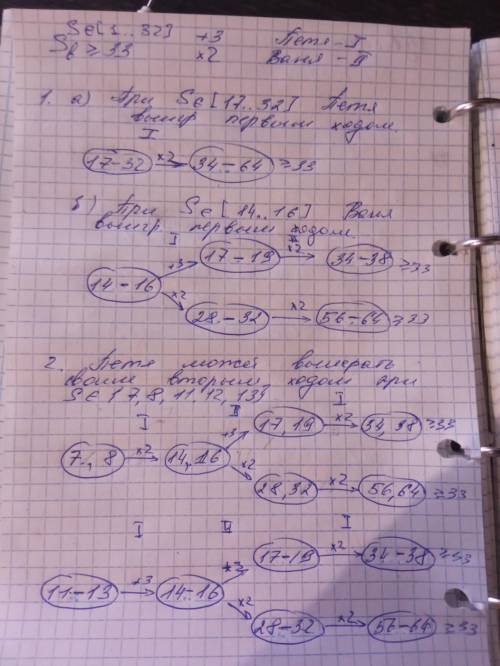 S∈[1..32] +3 Петя-I
Sв ≥ 33 ×2 Ваня-II
1. а) При S∈[17..32] Петя
выигр первым ходом.
I
17-32 ×2 34-64 ≥33
б) При S∈[14..16] Ваня
выигр. первым ходом.
I II
14-16 +3 17-19 ×2 34-38 ≥33
×2 28-32 ×2 56-64 ≥33
2. Петя может выиграть
своим вторым ходом при
S∈{7,8,11,12,13}
I II I
7, 8 ×2 14,16 +3 17,19 ×2 34,38 ≥33
×2 28,32 ×2 56,64 ≥33
I II I
11-13 +3 14-16 +3 17-19 ×2 34-38 ≥33
×2 28-32 ×2 56-64 ≥33